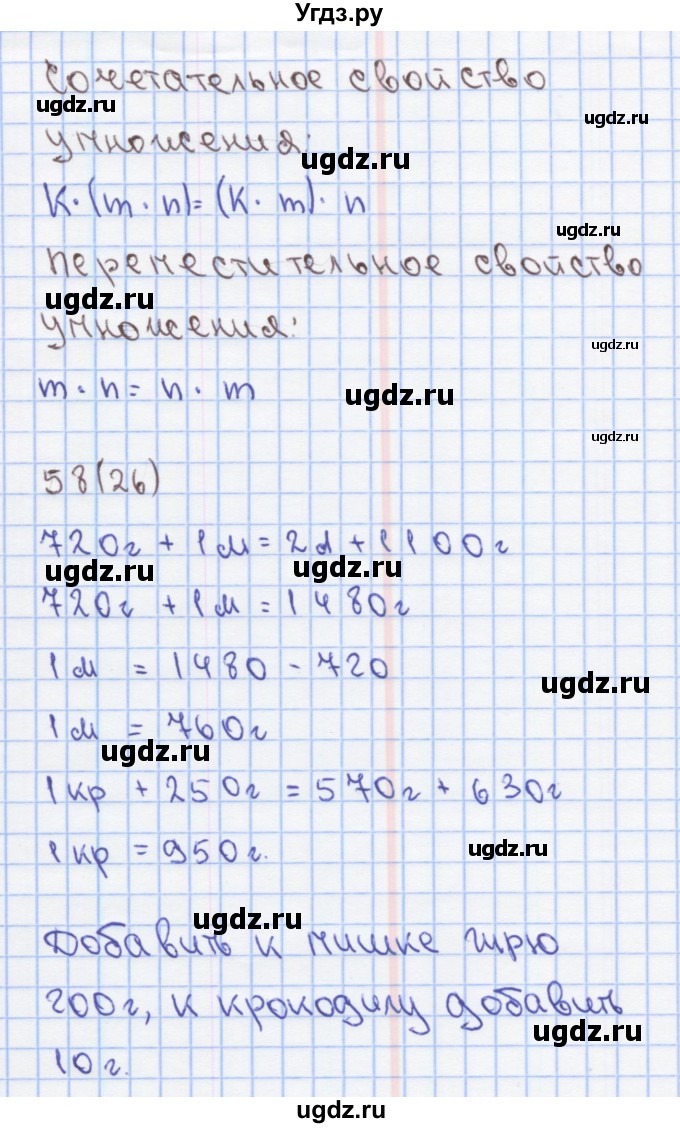 Угдз.ру
Сочетательное свойство
ugdz.ru
ugdz.ru
умножения:
ugdz.ru
К·(m·n)=(К·m)·n
ugdz.ru
Переместительное свойство
ugdz.ru
умножения:
ugdz.ru
m·n=n·m
ugdz.ru
ugdz.ru
58(26)
720г + 1М = 2d + 1100г
ugdz.ru
ugdz.ru
720г + 1М = 1480г
1М = 1480 - 720
ugdz.ru
1М = 760г
ugdz.ru
1кр + 250г = 570г + 630г
1кр = 950г.
ugdz.ru
ugdz.ru
Добавить к мишке гирю
200г, к крокодилу добавить
ugdz.ru
10г.
ugdz.ru